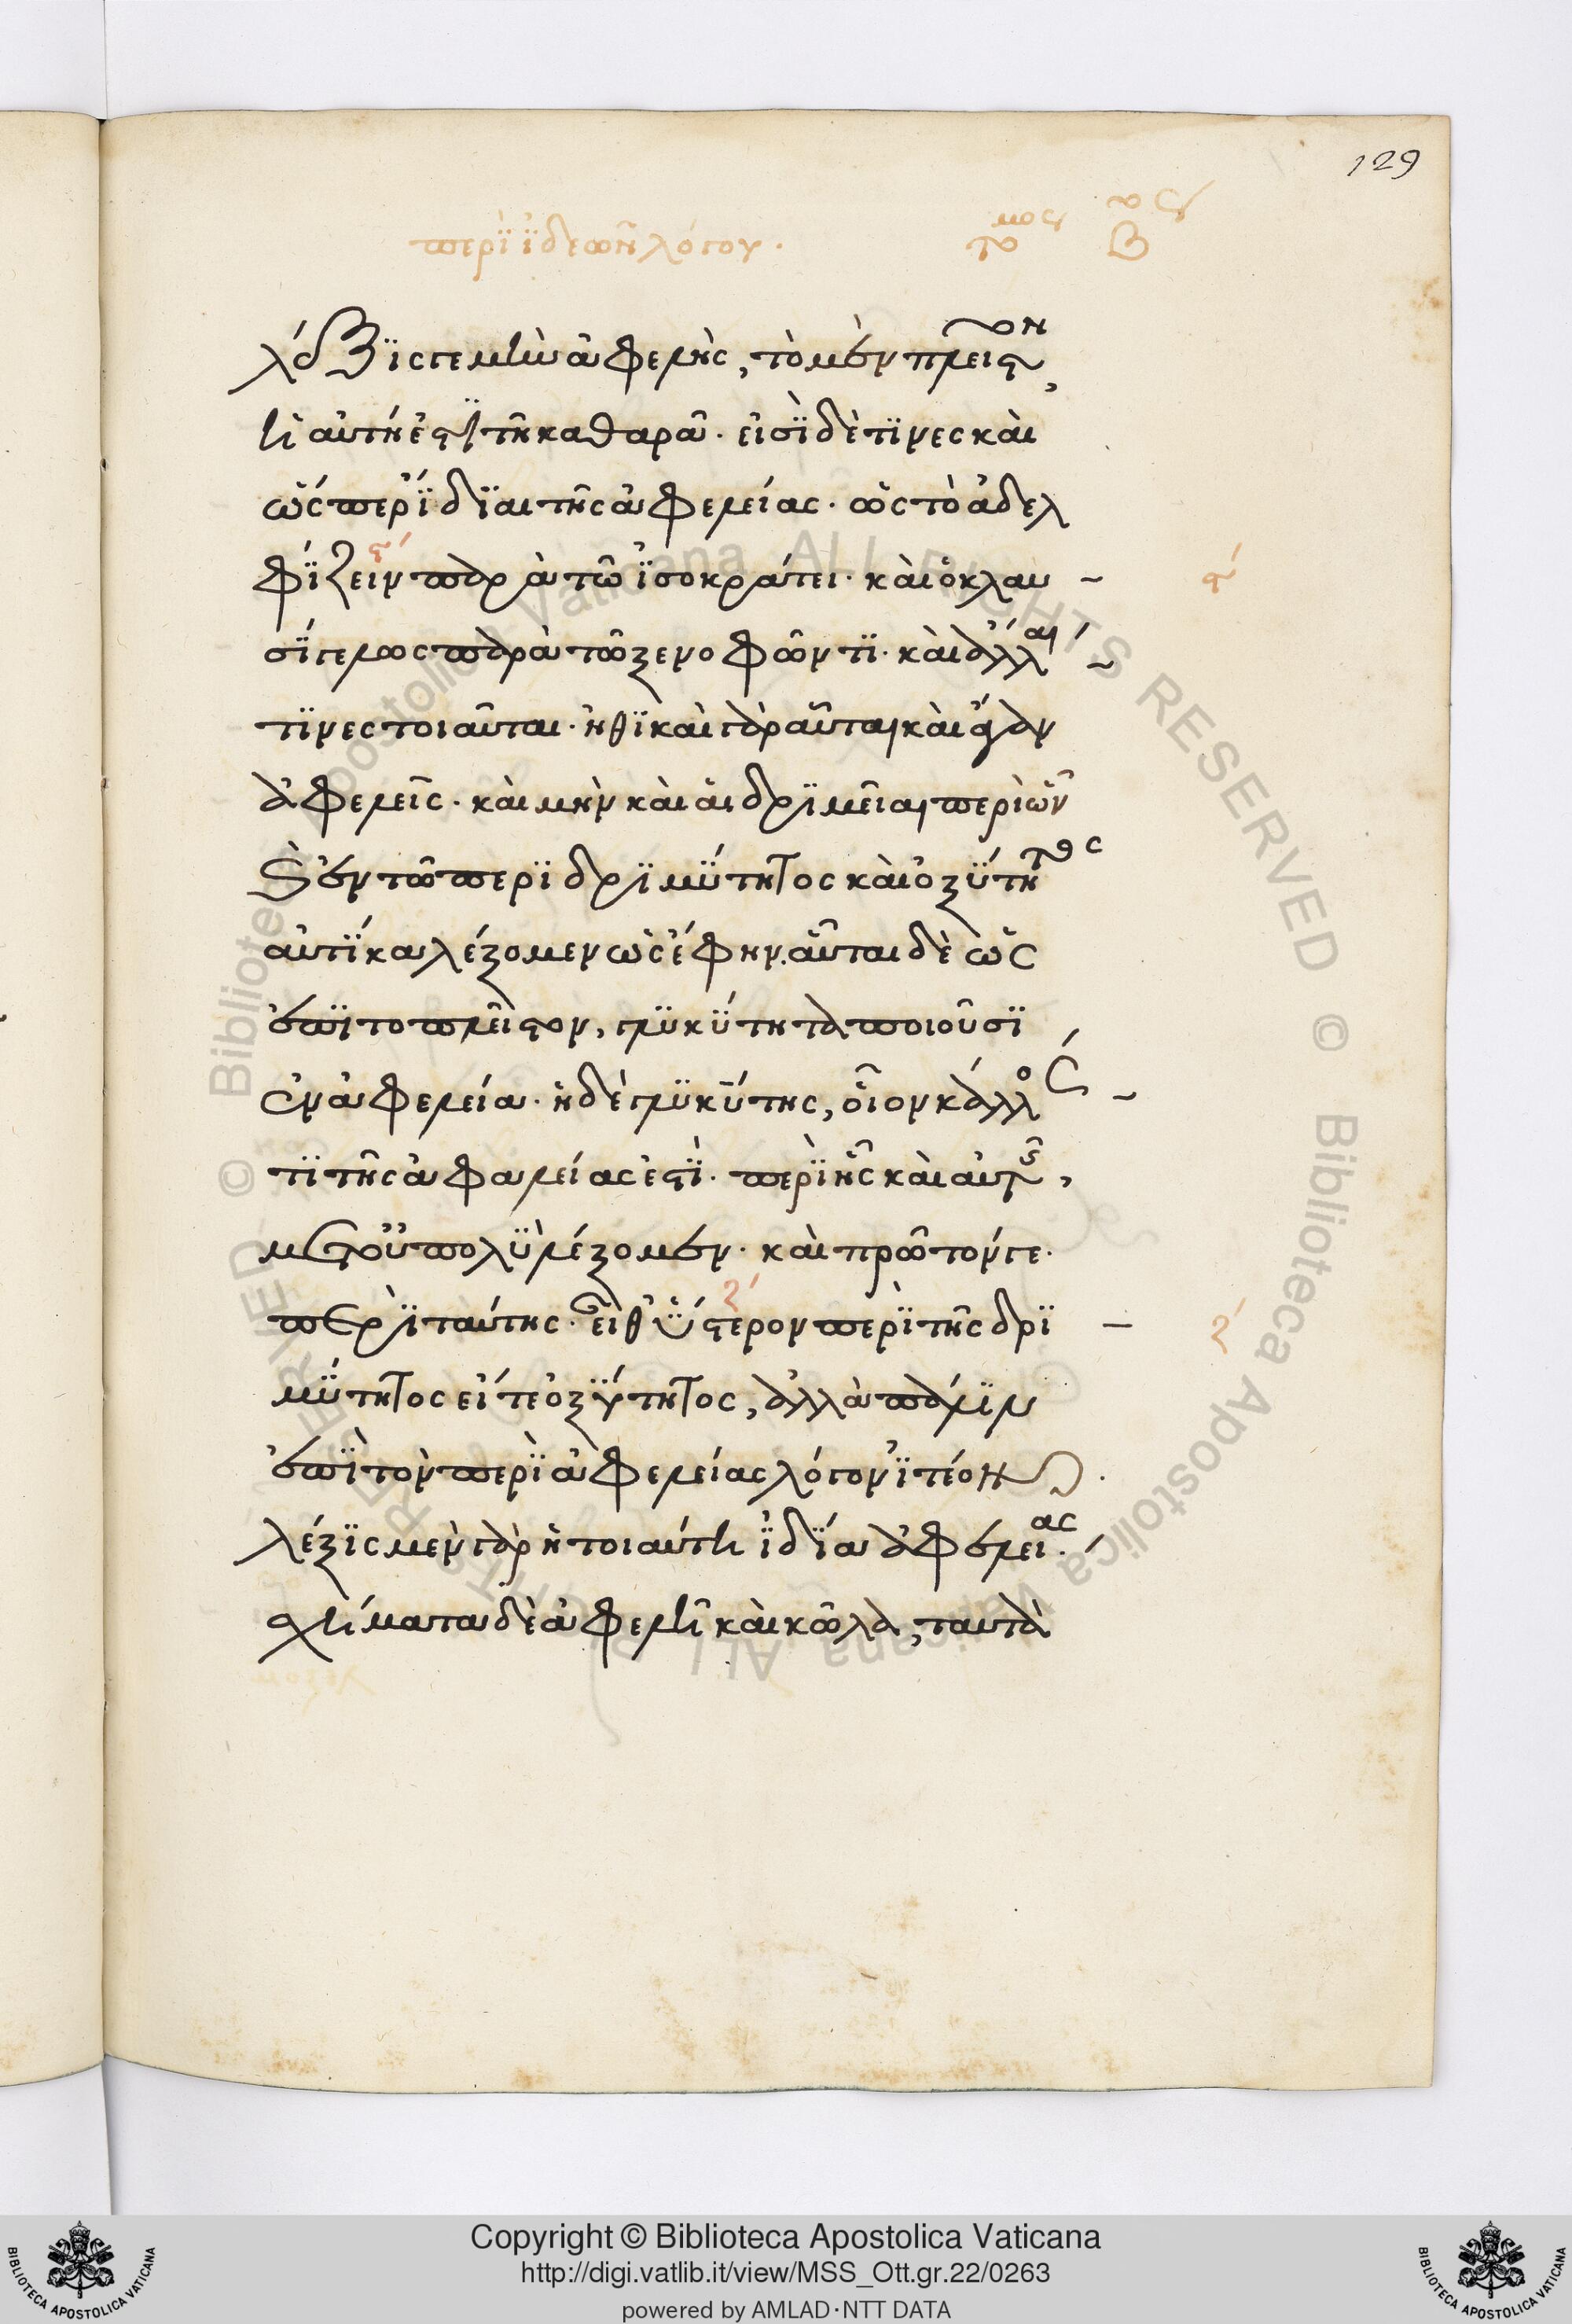 129
περὶ ἰδεῶν λόγου. τόμος β ος
λέξις γε μὴν ἀφελὴς, τὸ μὲν πλεῖστον,
ἡ αὐτή ἐστι τῇ καθαρᾷ. εἰσὶ δέ τινες καὶ
ὥσπερ ἴδιαι τῆς ἀφελείας. ὡς τὸ ἀδελ
φίζειν παρὰ τῷ ἰσοκράτει. καὶ ὁ κλαυ -
σίγελως παρὰ τῷ ξενοφῶντι. καὶ ἄλλαι
τινες τοιαῦται. ἠθικαὶ γὰρ αὗται καὶ ἄγαν
ἀφελεῖς. καὶ μὴν καὶ αἱ δριμεῖαι περὶ ὧν
ἐν τῷ περὶ δριμύτητος καὶ ὀξύτητος
αὐτίκα λέξομεν ὡς ἔφην. αὗται δὲ ὡς
ἐπιτοπλεῖστον, γλυκύτητα ποιοῦσι
ἐν ἀφελείᾳ. ἡ δὲ γλυκύτης, οἷον κάλλος -
τὶ τῆς ἀφαλείας ἐστὶ. περὶ ἧς καὶ αὐτῆς,
μετοὐπολὺ λέξομεν. καὶ πρῶτόν γε.
περὶ ταύτης. εἶθ ὕστερον περὶ τῆς δρι -
μύτητος εἴτε ὀξύτητος, ἀλλὰ πάλιν
ἐπὶ τὸν περὶ ἀφελείας λόγον ἰτέον.
λέξις μὲν γὰρ ἡ τοιαύτη ἰδία ἀφελείας.
σχήματα δὲ ἀφελῆ καὶ κῶλα, ταυτὰ
© Biblioteca Apostolica Vaticana ALL RIGHTS RESERVED © Biblioteca Apostolica Vaticana ALL RIGHTS RESERVED
Copyright © Biblioteca Apostolica Vaticana
http://digi.vatlib.it/view/MSS_Ott.gr.22/0263
powered by AMLAD·NTT DATA
BIBLIOTECA APOSTOLICA VATICANA
BIBLIOTECA APOSTOLICA VATICANA